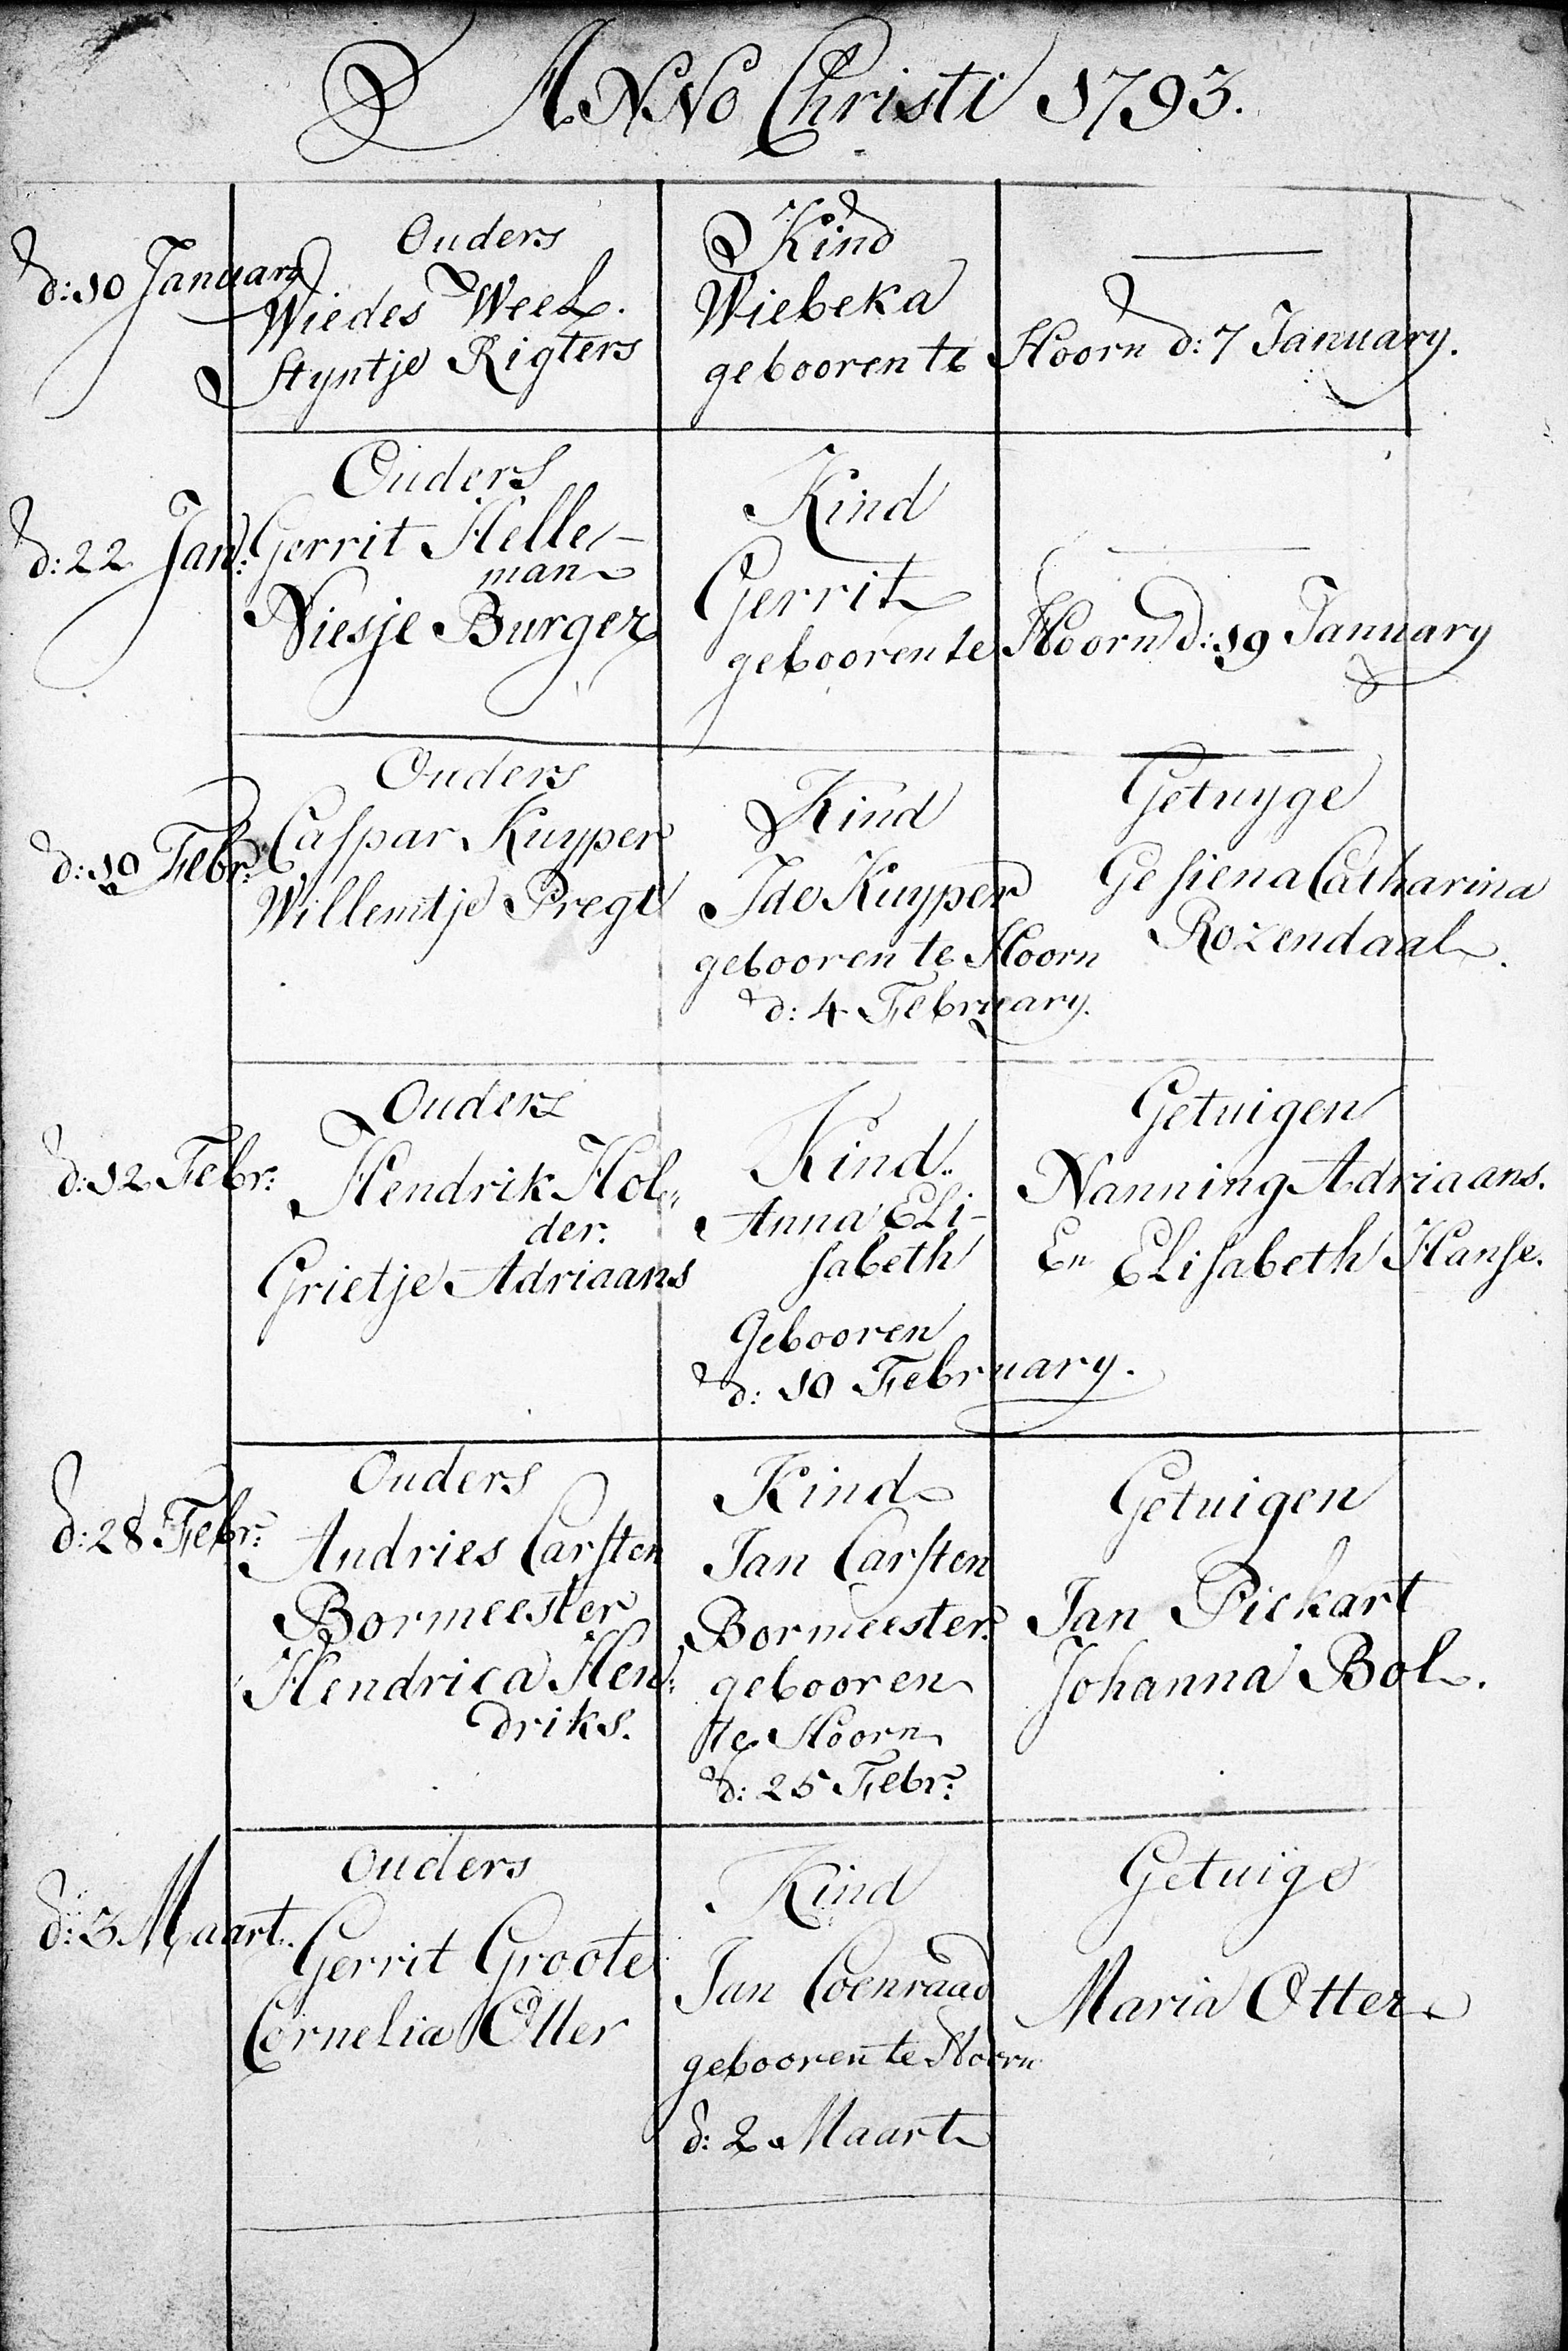 ANNo Christi 1793.
d: 10 January
Ouders
Wiedes Weel.
Styntje Rigters
Kind
Wiebeka
gebooren te Hoorn d: 7 January.
d: 22 Jan:
Ouders
Gerrit Helle-
man
Niesje Burger
Kind
Gerrit
gebooren te Hoorn d: 19 January
d: 10 Febr:
Ouders
Caspar Kuyper
Willemtje Pregt
Kind
Ide Kuyper
gebooren te Hoorn
d: 4 February.
Getuyge
Gesiena Catharina
Rozendaal.
d: 12 Febr:
Ouders
Hendrik Hol,,
der.
Grietje Adriaans
Kind.
Anna Eli-
sabeth
Gebooren
d: 10 February.
Getuigen
Nanning Adriaans.
En Elisabeth Hanse.
d: 28 Febr:
Ouders
Andries Carsten
Bormeester
Hendrica Hen:
driks.
Kind
Jan Carsten
Bormeester.
gebooren
te Hoorn
d: 25 Febr:
Getuigen
Jan Pickart
Johanna Bol.
d: 3 Maart.
Ouders
Gerrit Groote
Cornelia Otter
Kind
Jan Coenraad
gebooren te Hoorn
d: 2 Maart
Getuige
Maria Otter